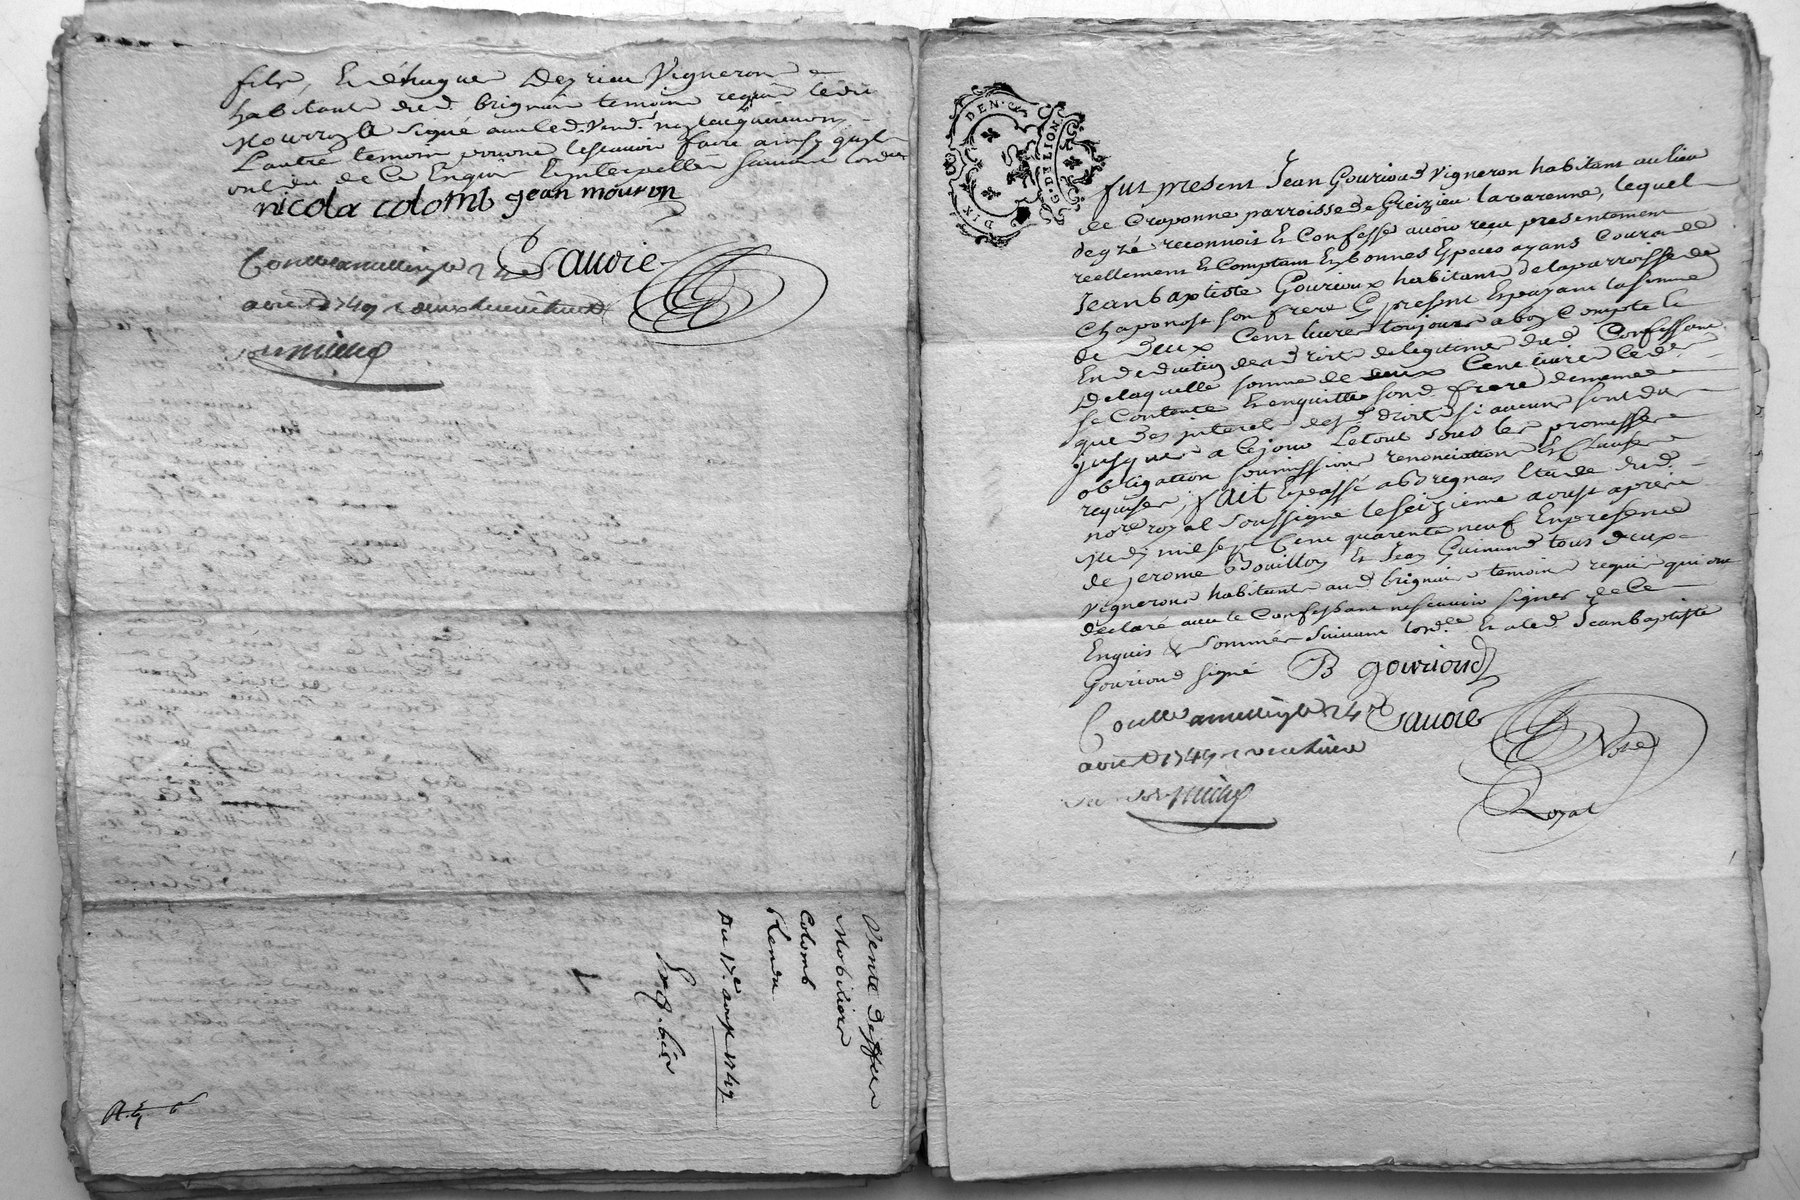 fils, Et éhugue Deyrieu Vigneron
habitants dud. brignais temoins requis ledit
Mourron a signé avec led. vend.
L'autre temoin pour ne le scavoir faire ainsy quils
ont dit de Ce Enquis Et interpellés suivant lord.ce
nicola colomb jean mouron
Controllé a millery le
Sauvoie
avril 1749
Vente deffets
Mobiliers
Colomb
Rendu
Du 17e. avril 1749
DIX DEN.
G. DE LION
fut present Jean Gourioud Vigneron habitant au lieu
de Craponne parroisse de Greizieu lavarenne, lequel
de gré reconnois Et Confesse avoir reçu presentement
reellement Et Comptant En bonnes Especes ayans Cours de
Jean baptiste Gourioux habitant de la parroisse de
Chaponost son frere Cy present Et payant la somme
de Deux Cent livres toujours a bon Compte Et
En deduction des droits de legitime dud. Confessant
De laquelle somme de deux Cent livres led.
se Contente Et en quitte sond. frere de meme
que des interets desd. droits si aucuns sont dus
jusques a Ce jour Le tout sous les promesses
obligation soumissions renonciations Et Clauses
requises, fait Et passé a Brignais Etude dud.
no.re royal soussigné le seizieme avril apres
midy mil sept Cent quarente neuf En presence
de jerome Bouillon Et Jean Guinand tous deux
vignerons habitants aud. brignais temoins requis qui ont
declaré avec le Confessant ne scavoir signer de Ce
Enquis & sommés suivant lord.ce Et a led. Jean baptiste
Gourioud signé B gourioud
Controllé a millery le 24
Sauvoie
avril 1749
Nore
Royal